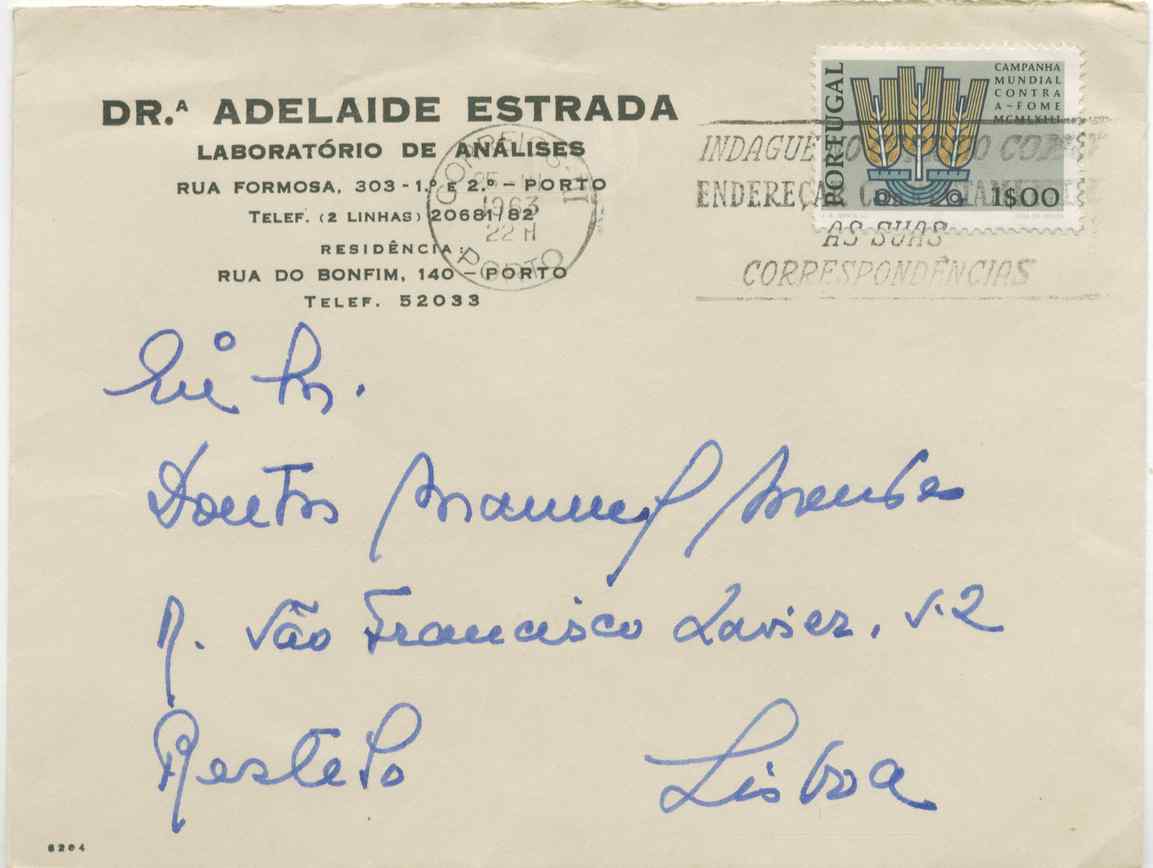 DR.ª ADELAIDE ESTRADA
LABORATÓRIO DE ANÁLISES
RUA FORMOSA, 303 - 1.º E 2.º – PORTO
TELEF. (2 LINHAS) 20681/82
RESIDÊNCIA:
RUA DO BONFIM, 140 – PORTO
TELEF. 52033
CORREIOS
1963
22 H
PORTO
PORTUGAL
CAMPANHA
MUNDIAL
CONTRA
A-FOME
MCMLXIII
1$00
INDAGUE
ENDEREÇAR
AS SUAS
CORRESPONDÊNCIAS
Doutor Manuel Mendes
R. São Francisco Xavier, 52
Restelo Lisboa
6204